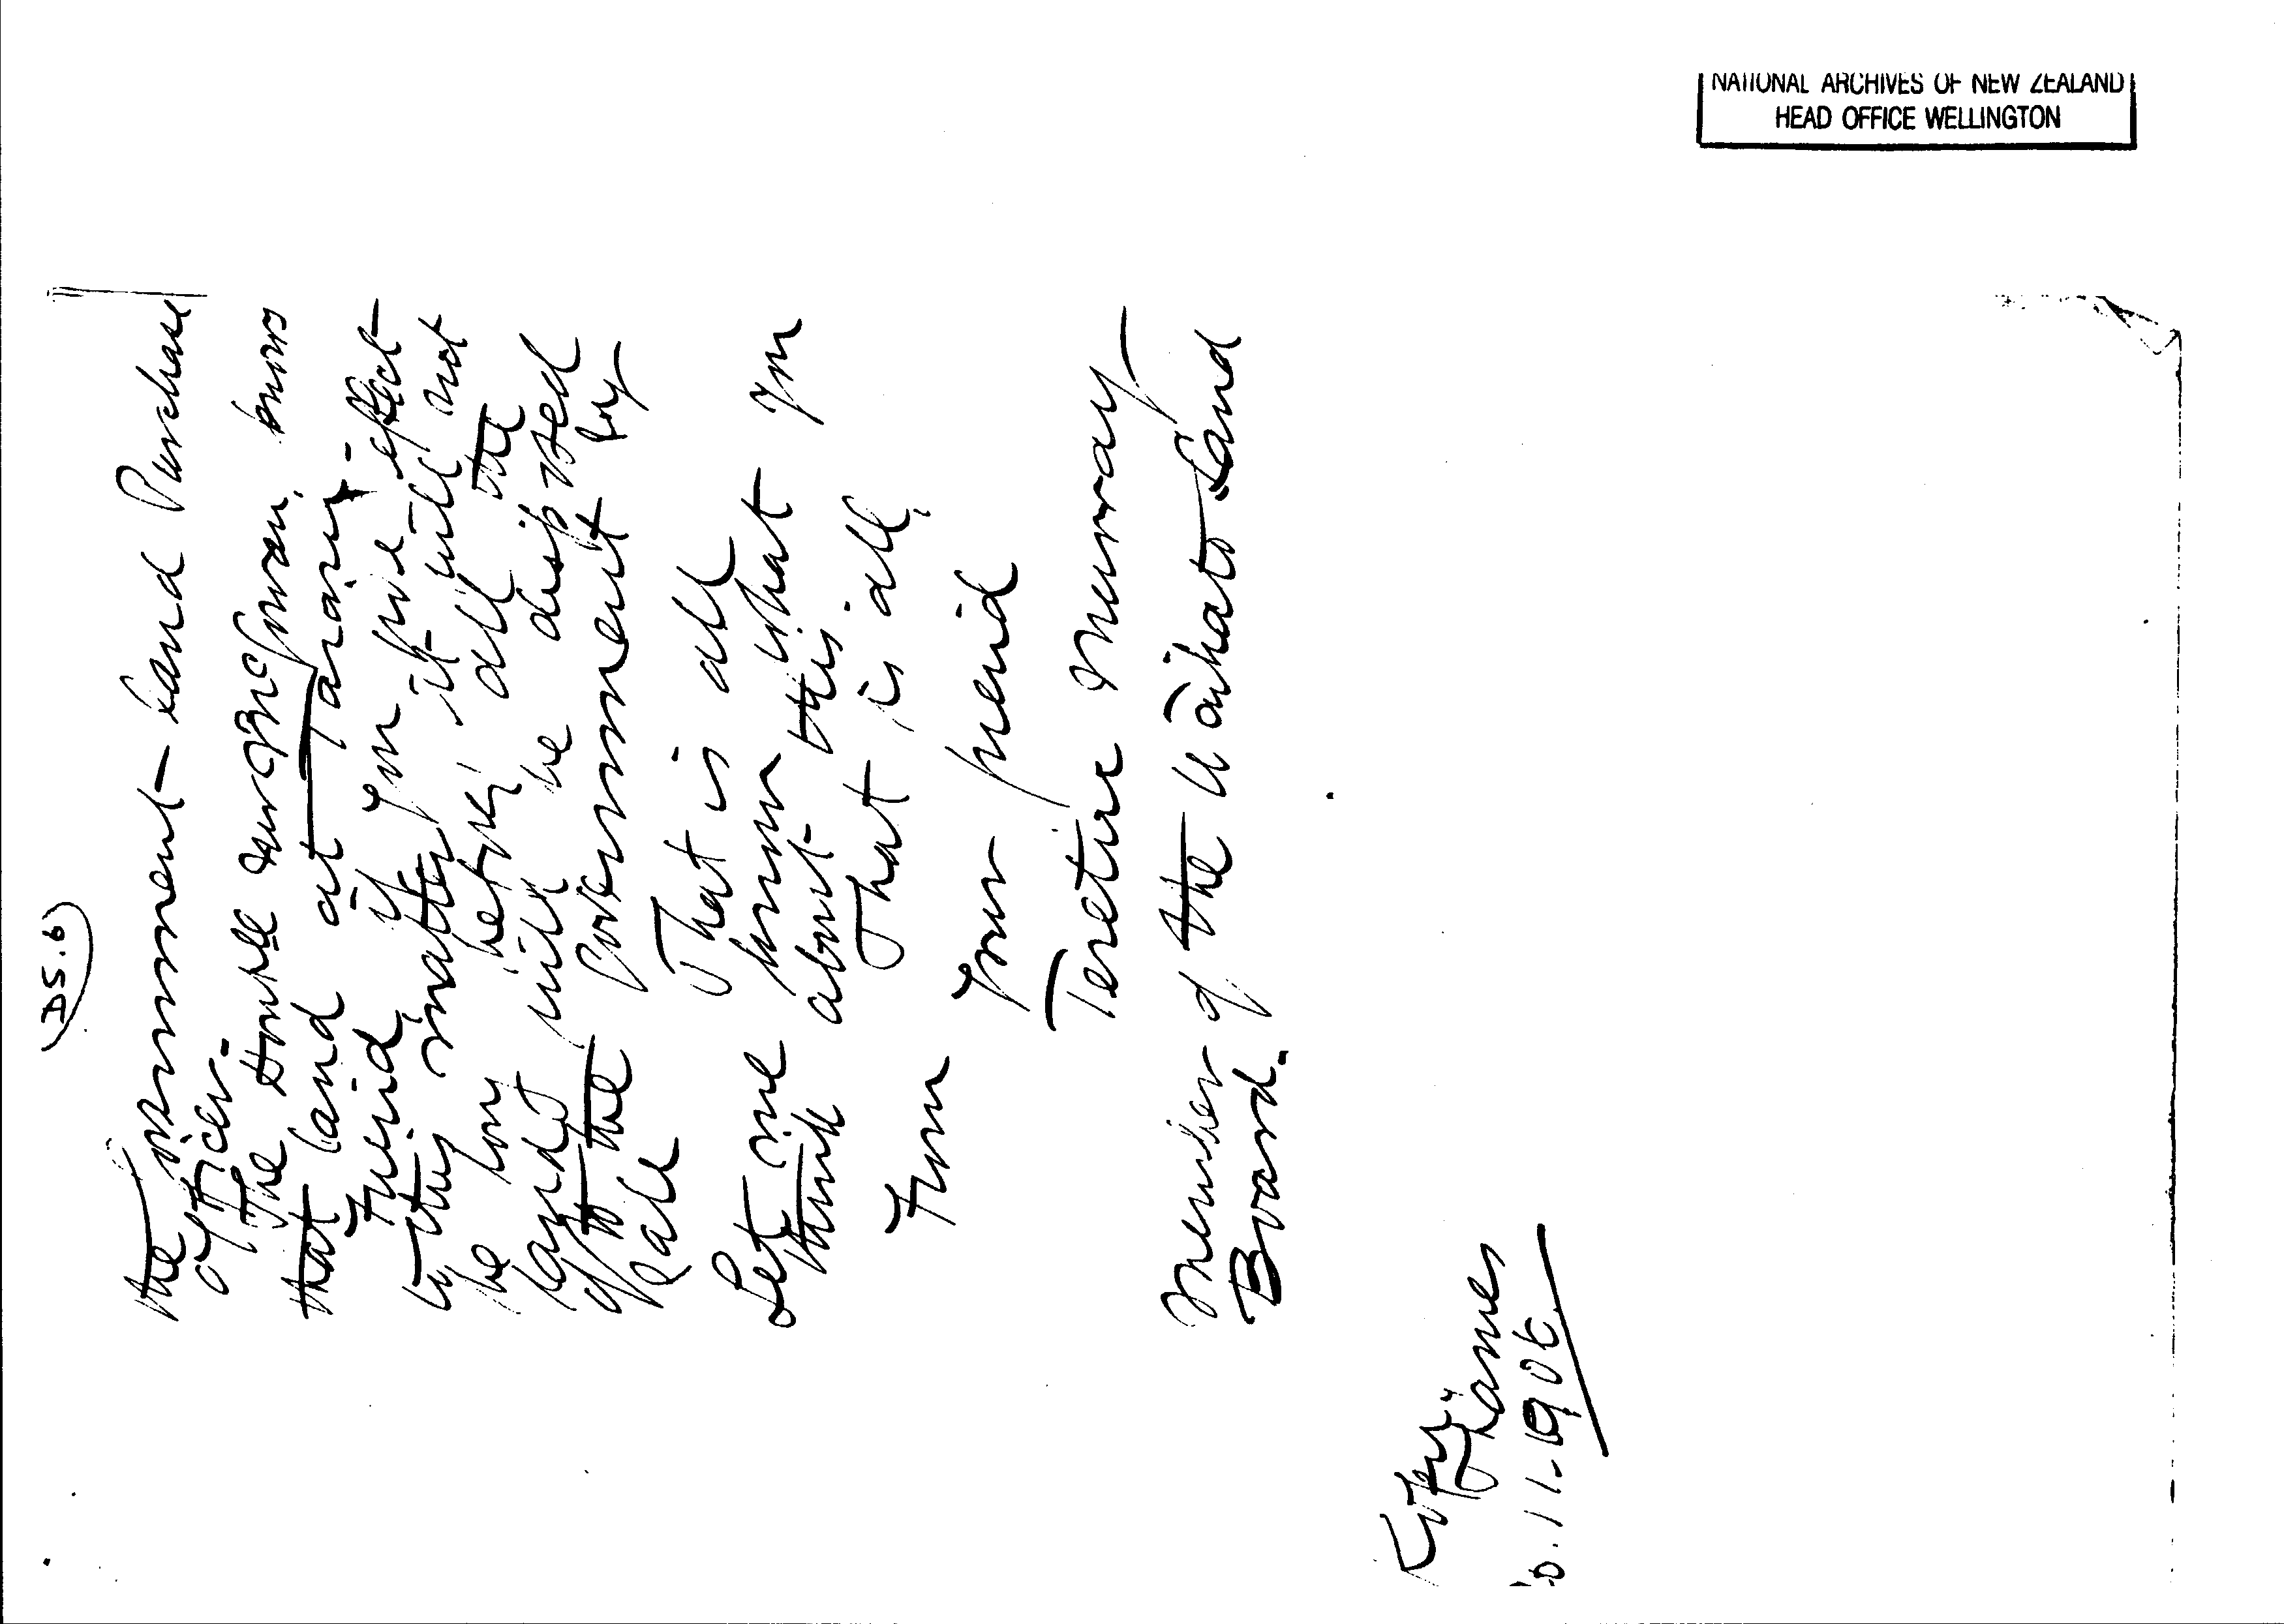 NATIONAL ARCHIVES OF NEW ZEALAND
HEAD OFFICE WELLINGTON
D5.6
the Government Land Purchase
officer.
The
that land at
Friend, if you give effect
to this matter it will not
be long before all the
lands will be disposed
of to the Government by
sale
That is all
Let me know what you
think about this.
That is all,
From
Your friend
Teretiu Murray
Member of the Waikato Land
Board.
11.1906